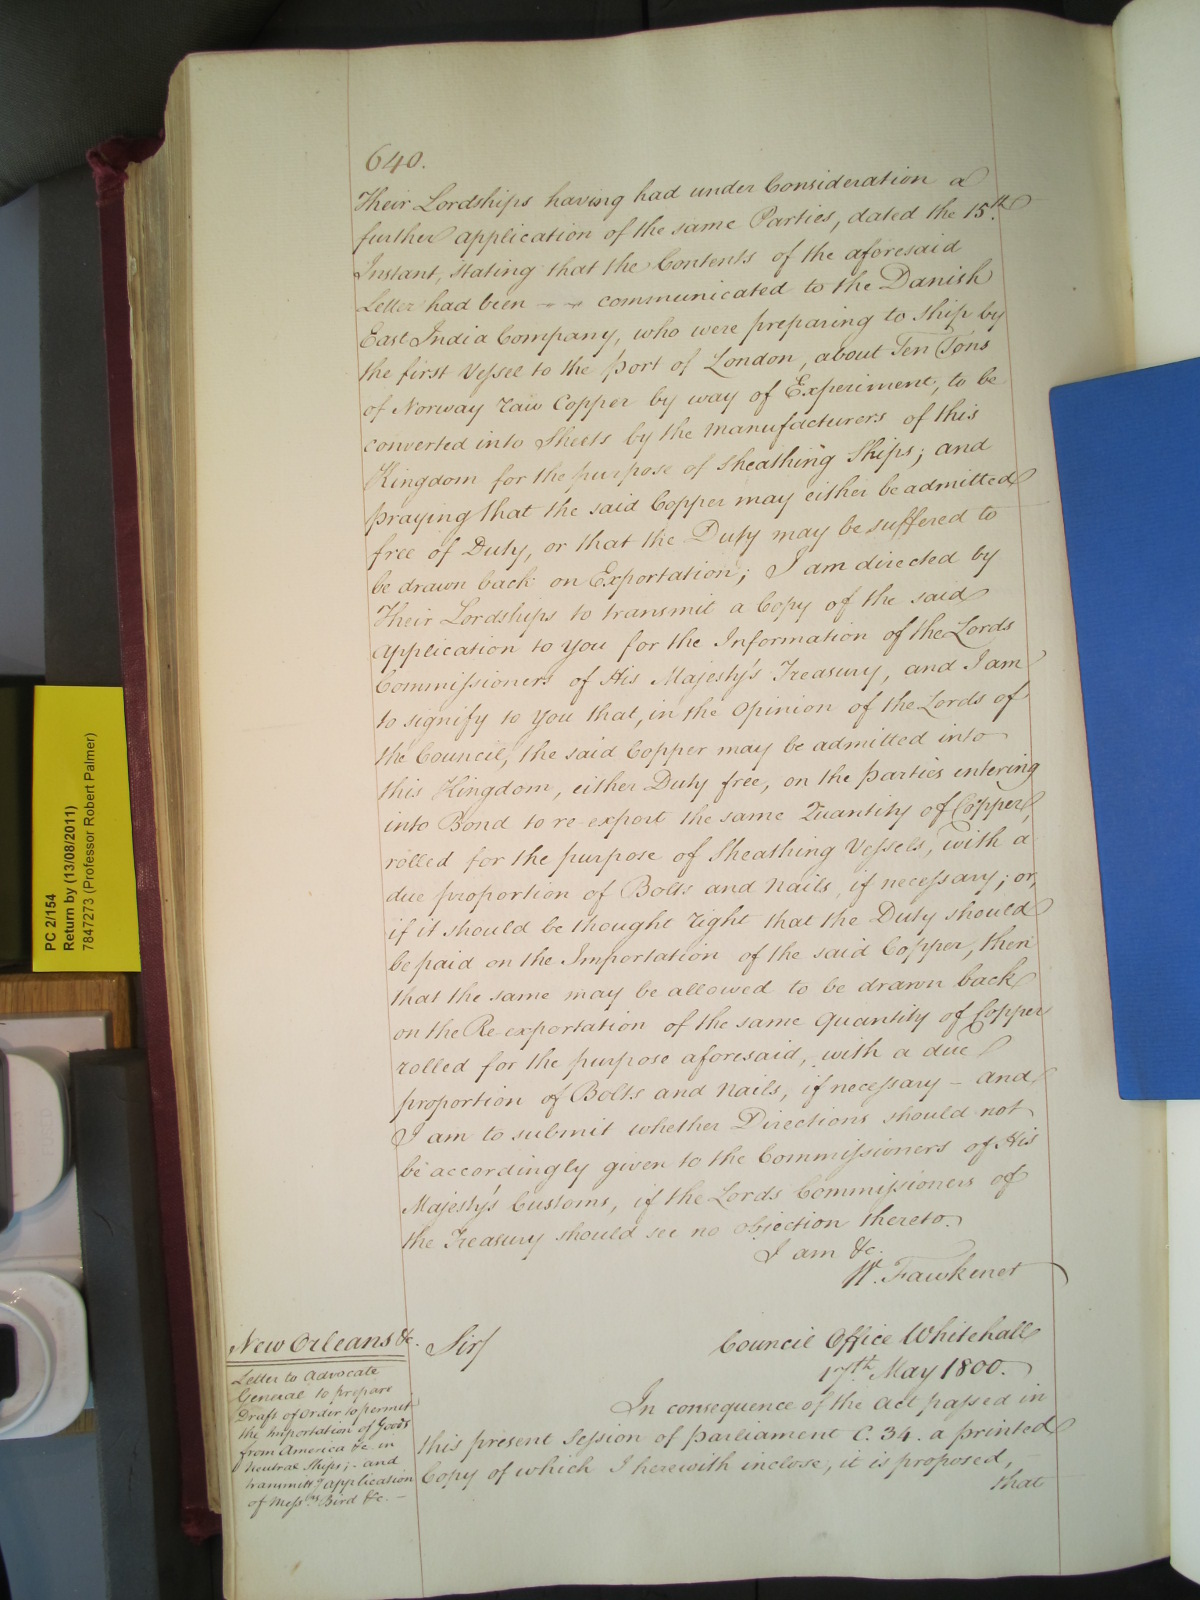 640.
Their Lordships having had under Consideration a
further application of the same Parties, dated the 15th
Instant, stating that the Contents of the aforesaid
Letter had been - - communicated to the Danish
East India Company, who were preparing to ship by
the first Vessel to the port of London, about Ten Tons
of Norway raw Copper by way of Experiment, to be
converted into Sheets by the Manufacturers of this
Kingdom for the purpose of sheathing Ships; and
praying that the said Copper may either be admitted
free of Duty, or that the Duty may be suffered to
be drawn back on Exportation; I am directed by
Their Lordships to transmit a Copy of the said
application to you for the Information of the Lords
Commissioners of His Majesty's Treasury, and I am
to signify to you that, in the opinion of the Lords of
the Council, the said Copper may be admitted into
this Kingdom, either Duty free, on the parties entering
into Bond to re-export the same Quantity of Copper,
rolled for the purpose of sheathing Vessels, with a
due proportion of Bolts and Nails, if necessary; or,
if it should be thought right that the Duty should
be paid on the Importation of the said Copper, then
that the same may be allowed to be drawn back
on the Re-exportation of the same Quantity of Copper
rolled for the purpose aforesaid, with a due
proportion of Bolts and Nails, if necessary - and
I am to submit whether Directions should not
be accordingly given to the Commissioners of His
Majesty's Customs, if the Lords Commissioners of
the Treasury should see no objection thereto.
I am &c.
W. Fawkener
New Orleans &c.
Letter to Advocate
General to prepare
Draft of Order to permit
the Importation of Goods
from America &c. in
Neutral Ships; - and
transmitt application
of Mess.rs Bird &c. -
Sir/
Council Office Whitehall
17th May 1800.
In consequence of the act passed in
this present Session of parliament C. 34. a printed
Copy of which I herewith inclose, it is proposed,
that
PC 2/154
Return by (13/08/2011)
7847273 (Professor Robert Palmer)